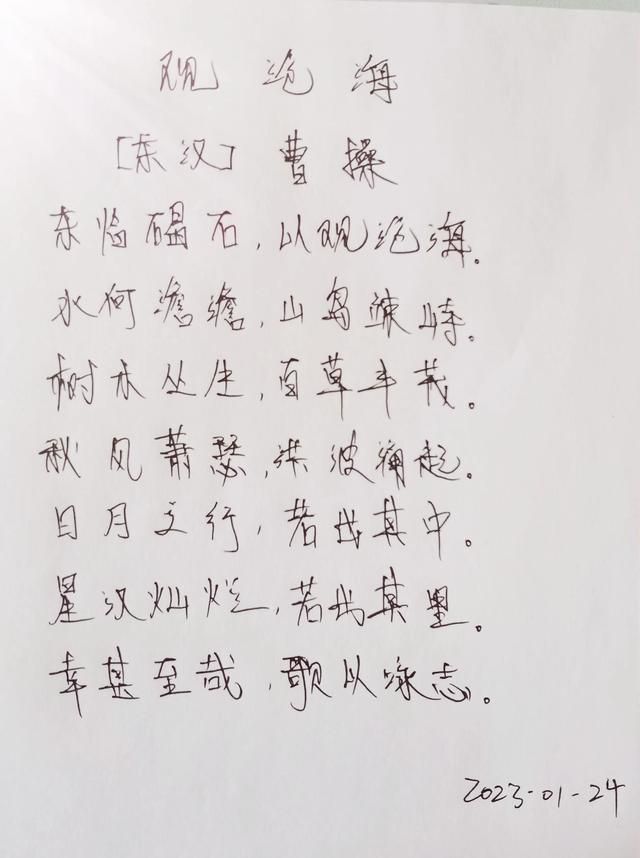 观沧海
[东汉] 曹操
东临碣石,以观沧海。
水何澹澹,山岛竦峙。
树木丛生,百草丰茂。
秋风萧瑟,洪波涌起。
日月之行,若出其中。
星汉灿烂,若出其里。
幸甚至哉,歌以咏志。
2023-01-24